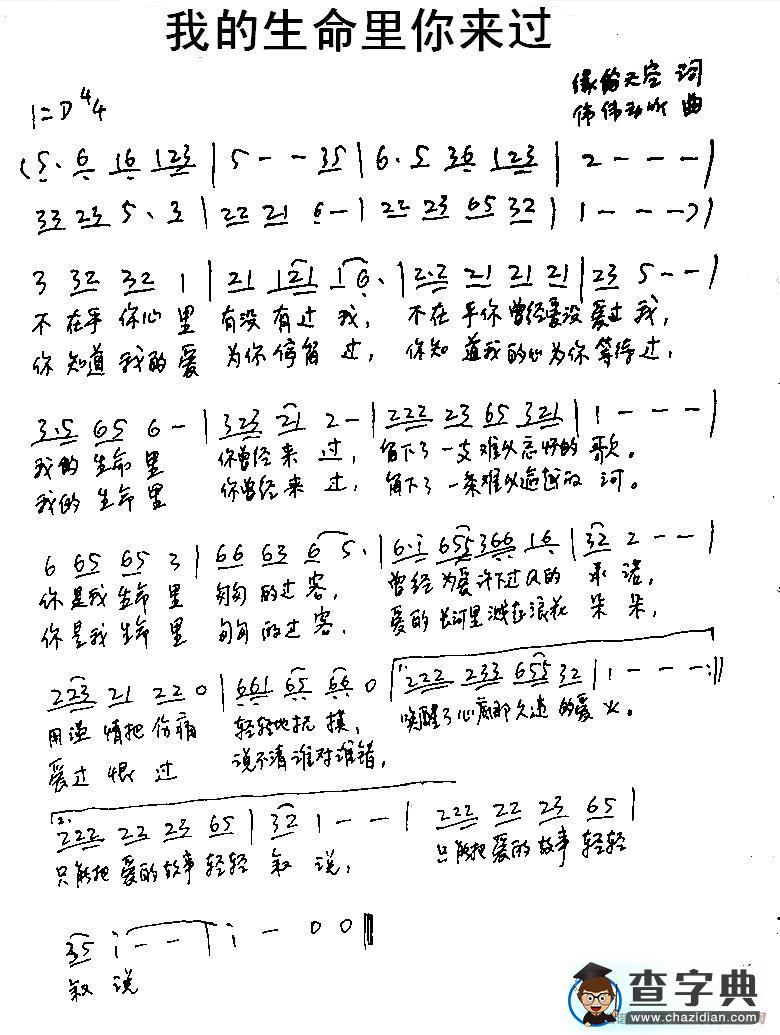 我的生命里你来过
1=D 4/4
词
曲
(5. 6 16 123 | 5 - - 35 | 6. 5 36 123 | 2 - - - |
33 23 5. 3 | 22 21 6 - | 22 23 65 32 | 1 - - -) |
3 32 32 1 | 21 121 16. | 2.2 21 21 21 | 23 5 - - |
不在乎你心里 有没有过我, 不在乎你曾经爱没爱过我,
你知道我的爱 为你停留过, 你知道我的心为你等待过,
3.5 65 6 - | 323 21 2 - | 222 23 65 321 | 1 - - - |
我的生命里 你曾经来过, 留下了一支难以忘怀的歌。
我的生命里 你曾经来过, 留下了一条难以逾越的河。
6 65 65 3 | 66 63 6 5. | 6.i 655 366 16 | 32 2 - - |
你是我生命里 匆匆的过客, 曾经为爱许下过的承诺,
你是我生命里 匆匆的过客, 爱的长河里溅起浪花朵朵,
223 21 22 0 | 661 65 66 0 | 1. 222 233 655 32 | 1 - - - :||
用温情把伤痛 轻轻地抚摸, 唤醒了心底那久违的爱火。
爱过恨过 说不清谁对谁错,
2. 222 23 23 65 | 32 1 - - | 222 22 23 65 |
只能把爱的故事轻轻叙说, 只能把爱的故事轻轻
35 i - - | i - 0 0 ||
叙说
查字典
www.chazidian.com